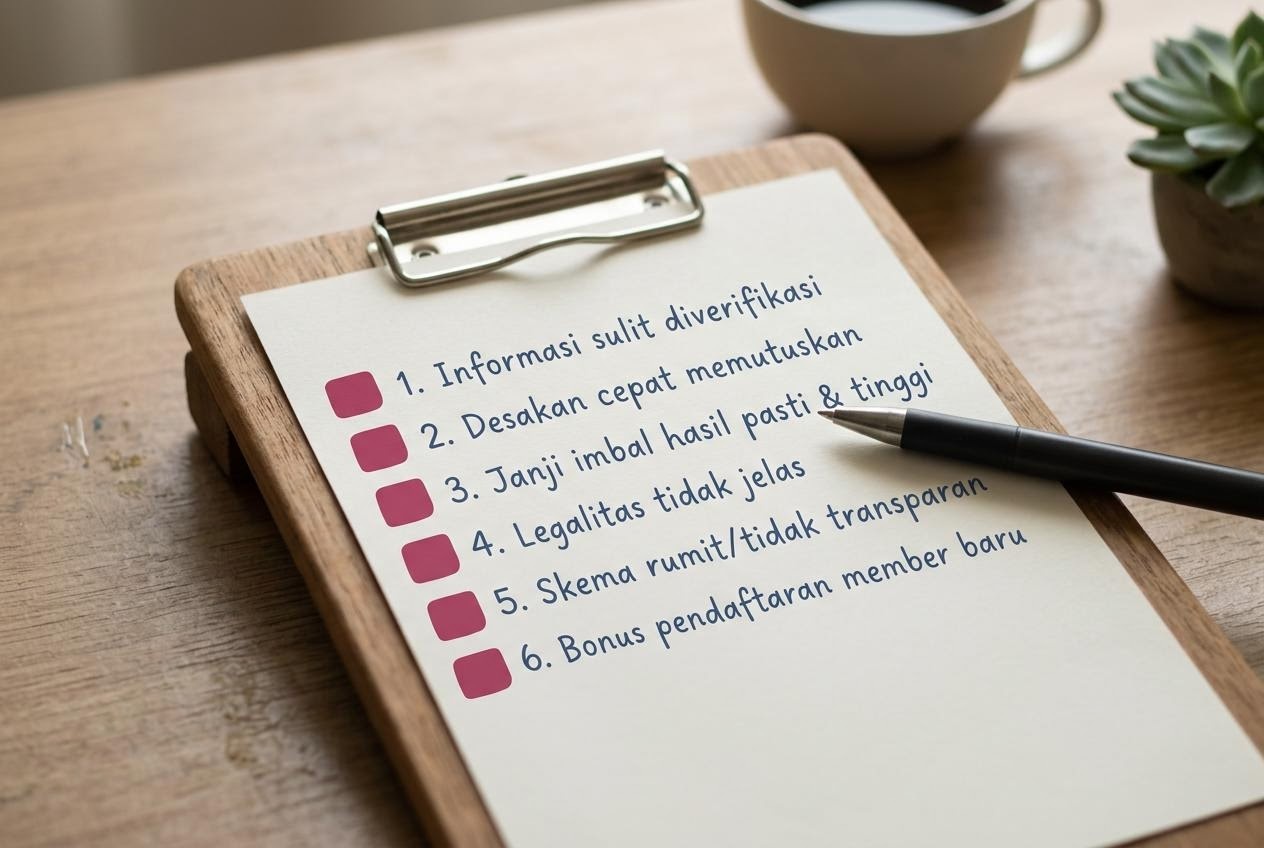 1. Informasi sulit diverifikasi
2. Desakan cepat memutuskan
3. Janji imbal hasil pasti & tinggi
4. Legalitas tidak jelas
5. Skema rumit/tidak transparan
6. Bonus pendaftaran member baru